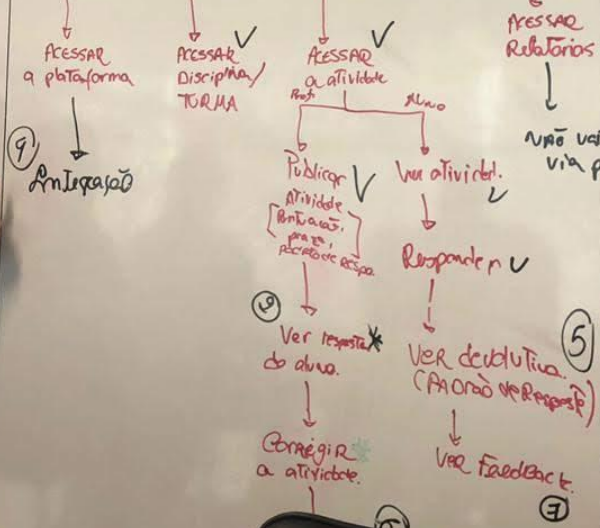 ACESSAR
a plataforma
9
Integração
ACESSAR
Disciplina/
TURMA
ACESSAR
a atividade
Prof.
Aluno
Publicar
Atividade
[Pontuação,
prazo,
padrão de Respo.]
Ver resposta*
do aluno.
Corrigir
a atividade.
Ver ativided.
Responder
VER devolutiva.
(PADRÃO de Resposta)
5
VER Feedback.
ACESSAR
Relatórios
NÃO vai
via p